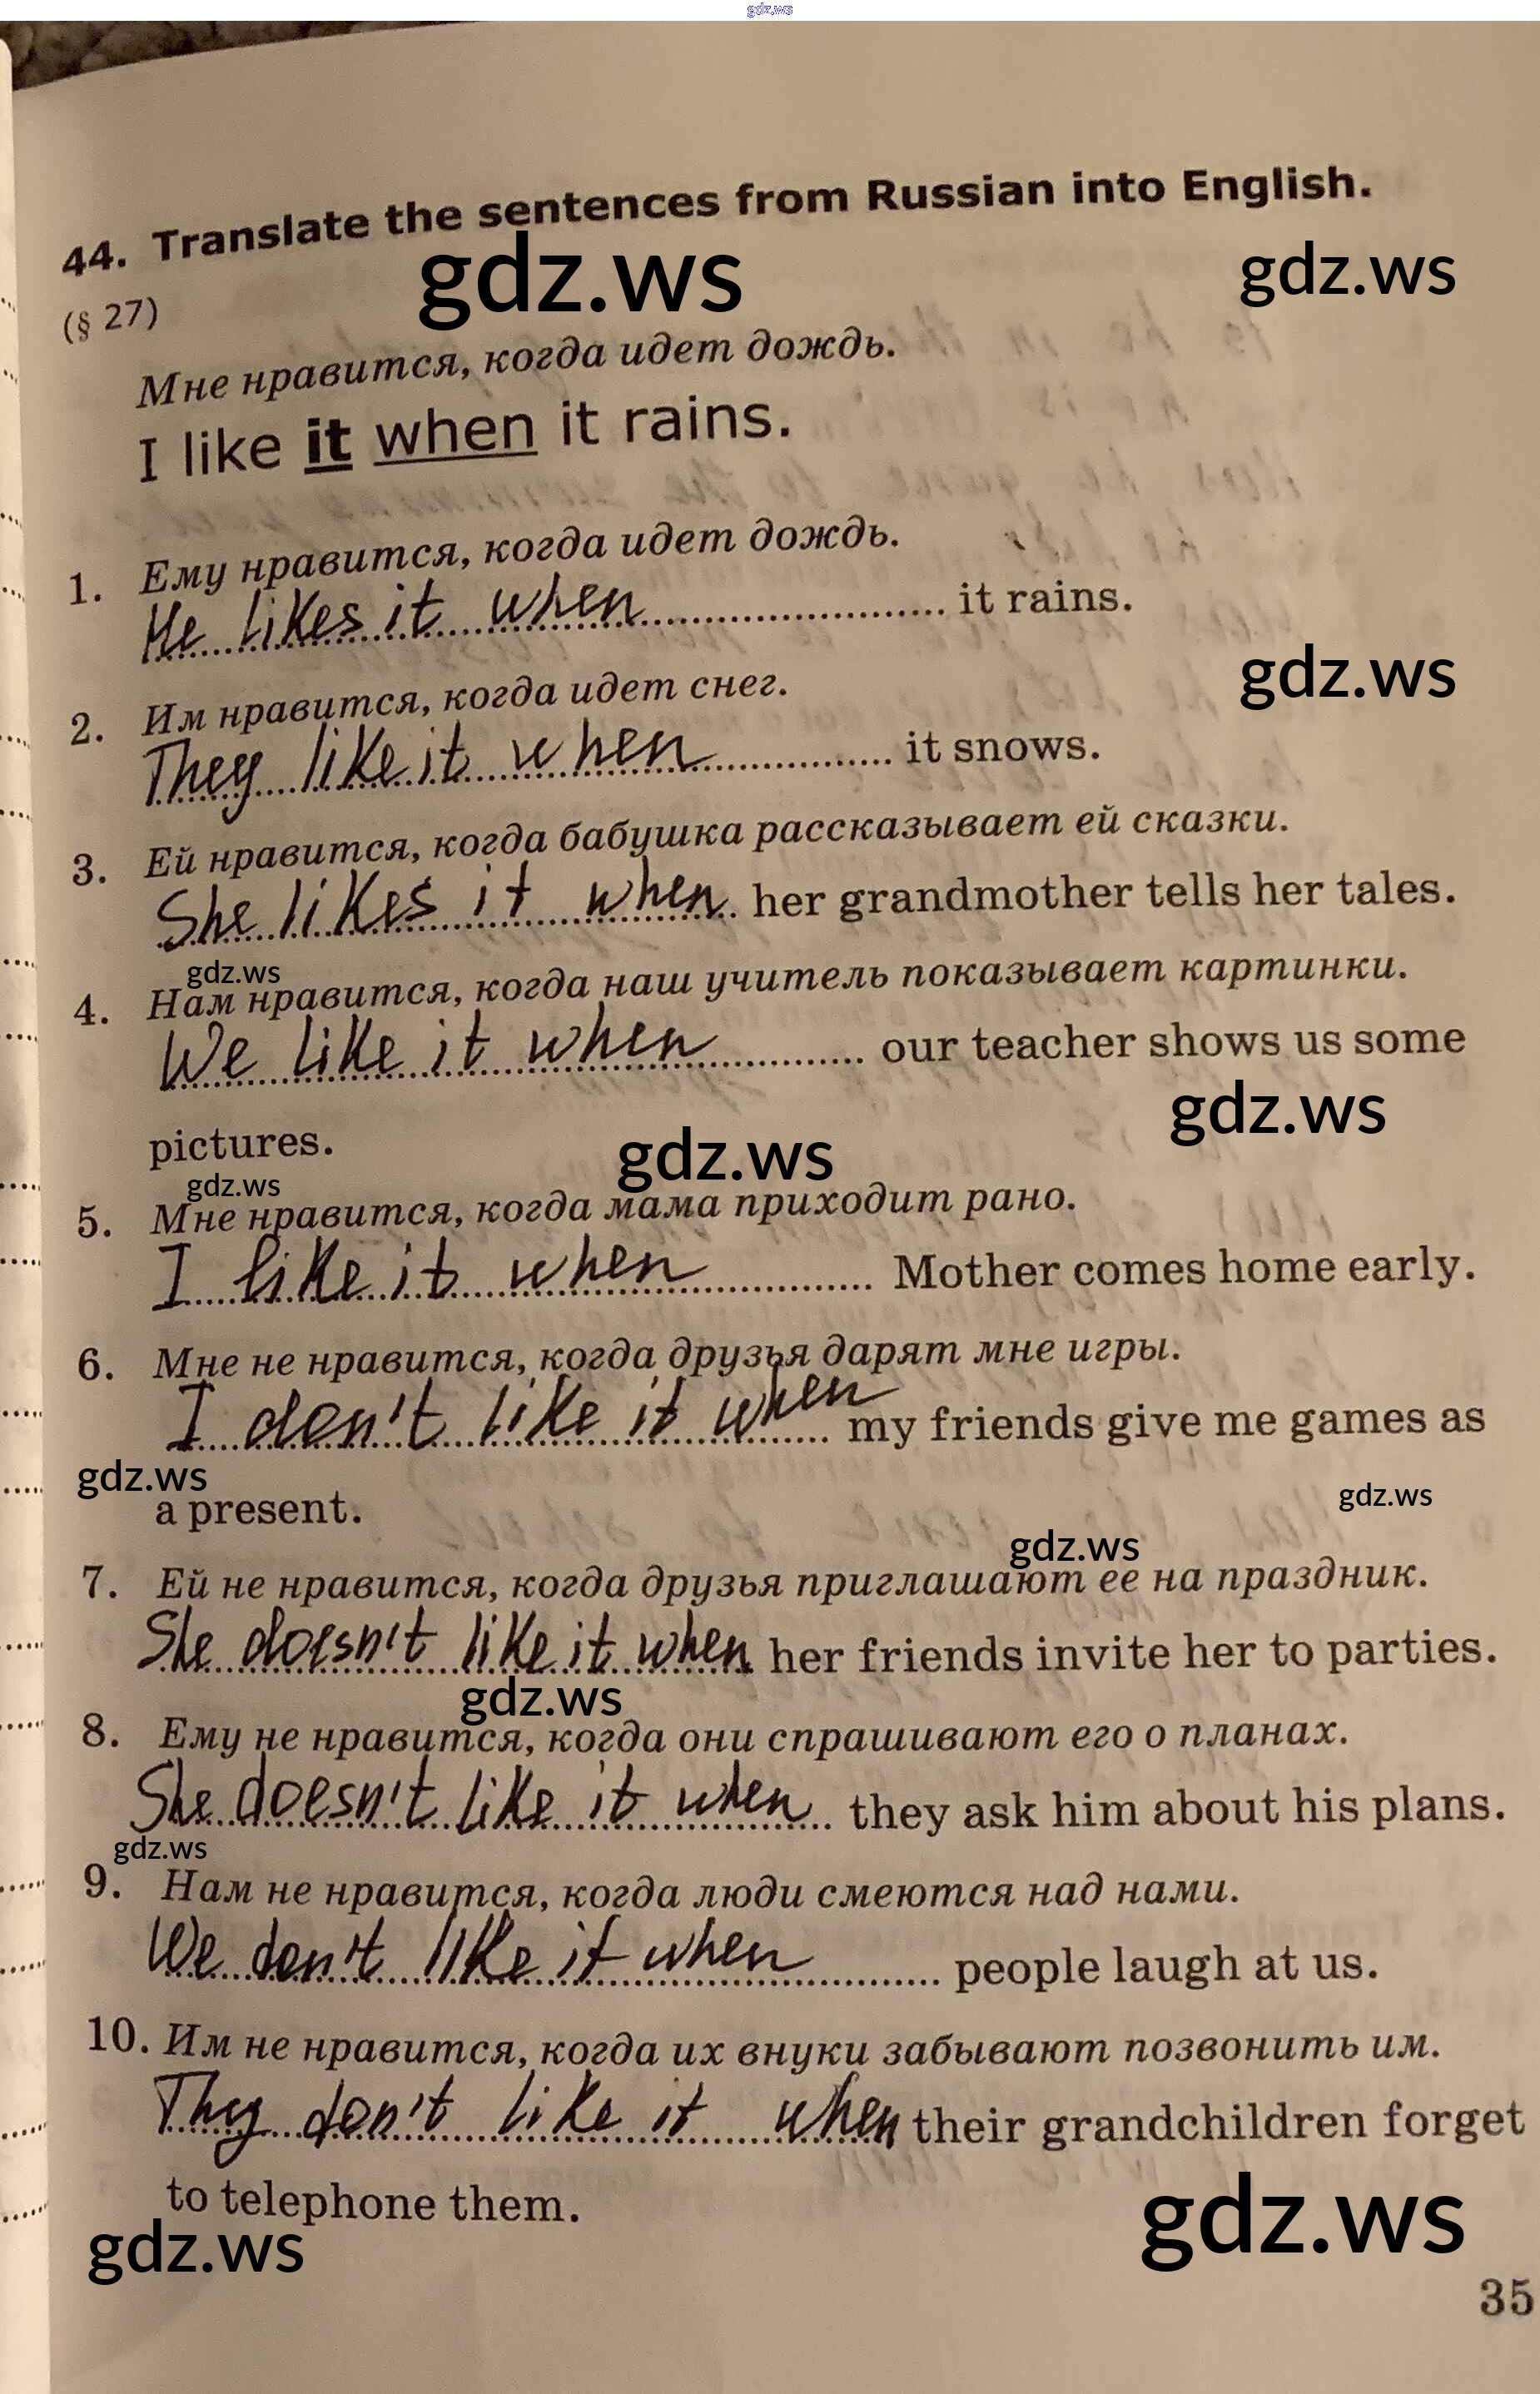 gdz.ws
44. Translate the sentences from Russian into English.
gdz.ws gdz.ws
(§ 27)
Мне нравится, когда идет дождь.
I like it when it rains.
1. Ему нравится, когда идет дождь.
He likes it when it rains.
gdz.ws
2. Им нравится, когда идет снег.
They like it when it snows.
3. Ей нравится, когда бабушка рассказывает ей сказки.
She likes it when her grandmother tells her tales.
gdz.ws
4. Нам нравится, когда наш учитель показывает картинки.
We like it when our teacher shows us some
gdz.ws
pictures.
gdz.ws
gdz.ws
5. Мне нравится, когда мама приходит рано.
I like it when Mother comes home early.
6. Мне не нравится, когда друзья дарят мне игры.
I don't like it when my friends give me games as
gdz.ws
a present.
gdz.ws
gdz.ws
7. Ей не нравится, когда друзья приглашают ее на праздник.
She doesn't like it when her friends invite her to parties.
gdz.ws
8. Ему не нравится, когда они спрашивают его о планах.
She doesn't like it when they ask him about his plans.
gdz.ws
9. Нам не нравится, когда люди смеются над нами.
We don't like it when people laugh at us.
10. Им не нравится, когда их внуки забывают позвонить им.
They don't like it when their grandchildren forget
to telephone them.
gdz.ws gdz.ws
35